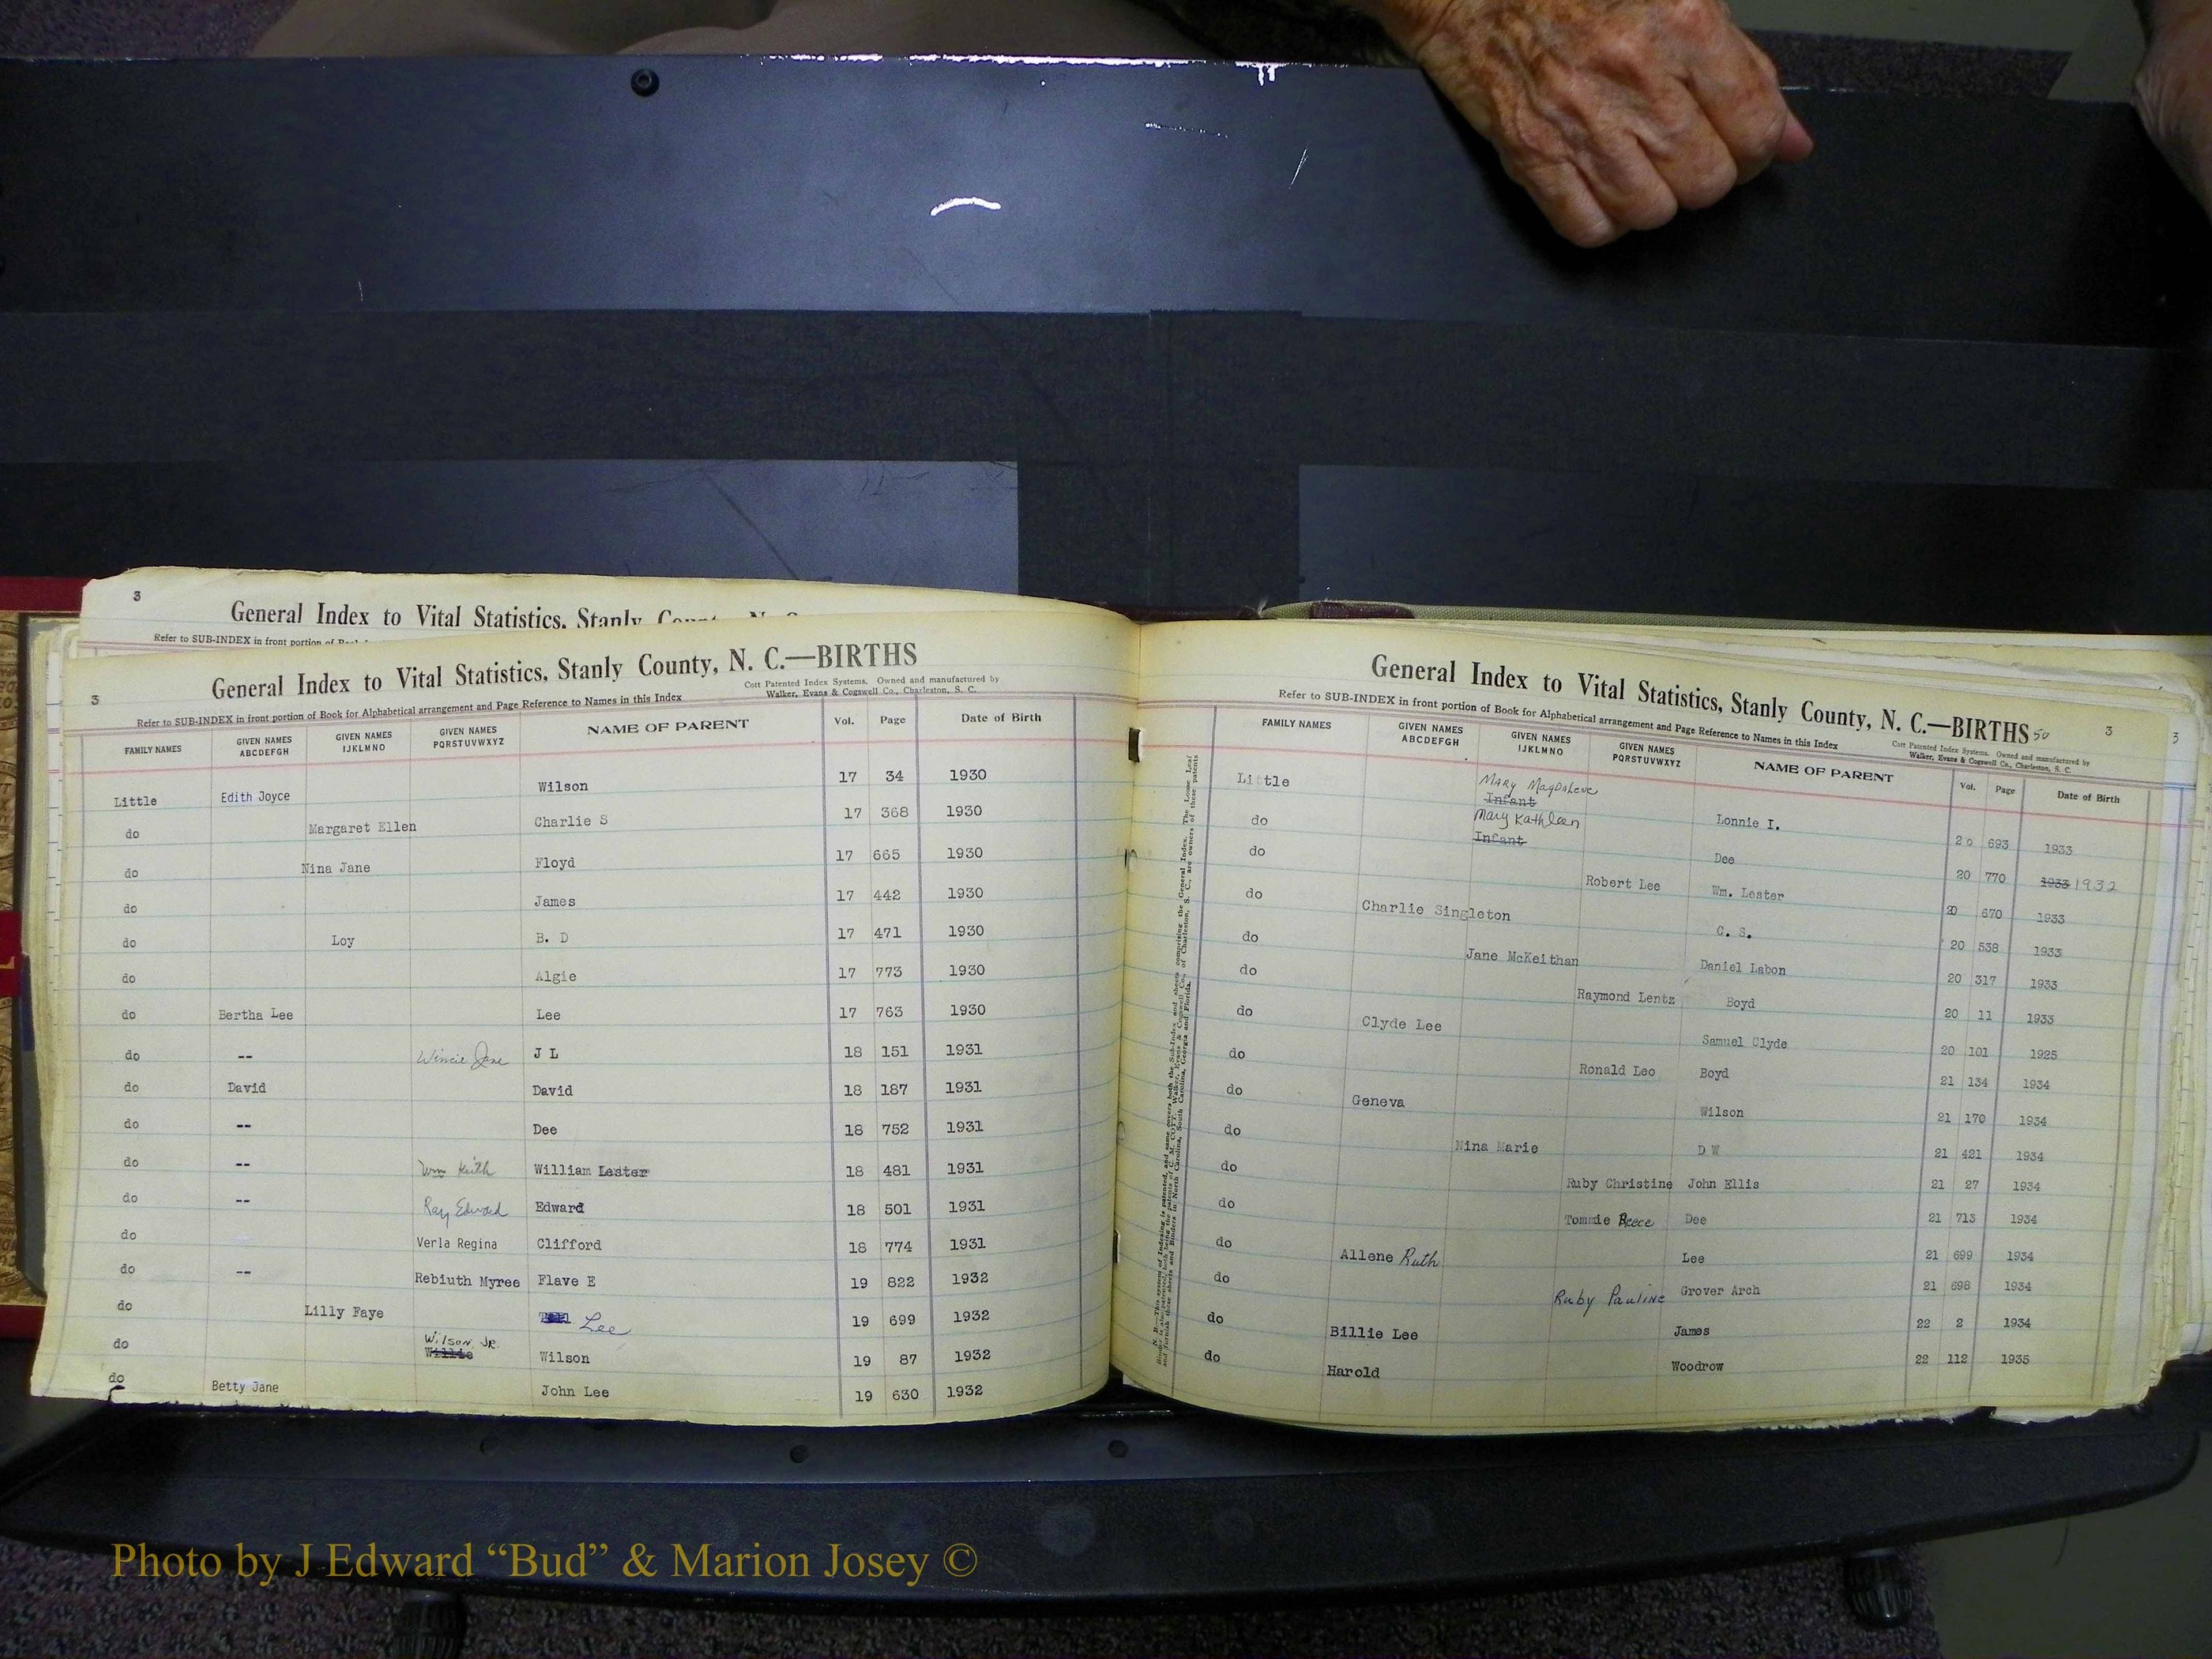 3
General Index to Vital Statistics, Stanly
Refer to SUB-INDEX in front portion of
3
General Index to Vital Statistics, Stanly County, N. C.—BIRTHS
Cott Patented Index Systems. Owned and manufactured by
Walker, Evans & Cogswell Co., Charleston, S. C.
Refer to SUB-INDEX in front portion of Book for Alphabetical arrangement and Page Reference to Names in this Index
FAMILY NAMES GIVEN NAMES ABCDEFGH GIVEN NAMES IJKLMNO GIVEN NAMES PQRSTUVWXYZ NAME OF PARENT Vol. Page Date of Birth
Little Edith Joyce Wilson 17 34 1930
do Margaret Ellen Charlie S 17 368 1930
do Nina Jane Floyd 17 665 1930
do James 17 442 1930
do Loy B. D 17 471 1930
do Algie 17 773 1930
do Bertha Lee Lee 17 763 1930
do -- Wincie Jane J L 18 151 1931
do David David 18 187 1931
do -- Dee 18 752 1931
do -- Wm Keith William Lester 18 481 1931
do -- Ray Edward Edward 18 501 1931
do Verla Regina Clifford 18 774 1931
do -- Rebiuth Myree Flave E 19 822 1932
do Lilly Faye Lee 19 699 1932
do Wilson Jr. Willie Wilson 19 87 1932
do Betty Jane John Lee 19 630 1932
General Index to Vital Statistics, Stanly County, N. C.—BIRTHS 50 3
3
Refer to SUB-INDEX in front portion of Book for Alphabetical arrangement and Page Reference to Names in this Index
Cott Patented Index Systems. Owned and manufactured by
Walker, Evans & Cogswell Co., Charleston, S. C.
FAMILY NAMES GIVEN NAMES ABCDEFGH GIVEN NAMES IJKLMNO GIVEN NAMES PQRSTUVWXYZ NAME OF PARENT Vol. Page Date of Birth
Little Mary Magdalene Infant Lonnie I. 20 693 1933
do Mary Kathleen Infant Dee 20 770 1933 1932
do Robert Lee Wm. Lester 20 670 1933
do Charlie Singleton C. S. 20 538 1933
do Jane McKeithan Daniel Labon 20 317 1933
do Raymond Lentz Boyd 20 11 1933
do Clyde Lee Samuel Clyde 20 101 1925
do Ronald Leo Boyd 21 134 1934
do Geneva Wilson 21 170 1934
do Nina Marie D W 21 421 1934
do Ruby Christine John Ellis 21 27 1934
do Tommie Reece Dee 21 713 1934
do Allene Ruth Lee 21 699 1934
do Ruby Pauline Grover Arch 21 698 1934
do Billie Lee James 22 2 1934
do Harold Woodrow 22 112 1935
Photo by J Edward “Bud” & Marion Josey ©